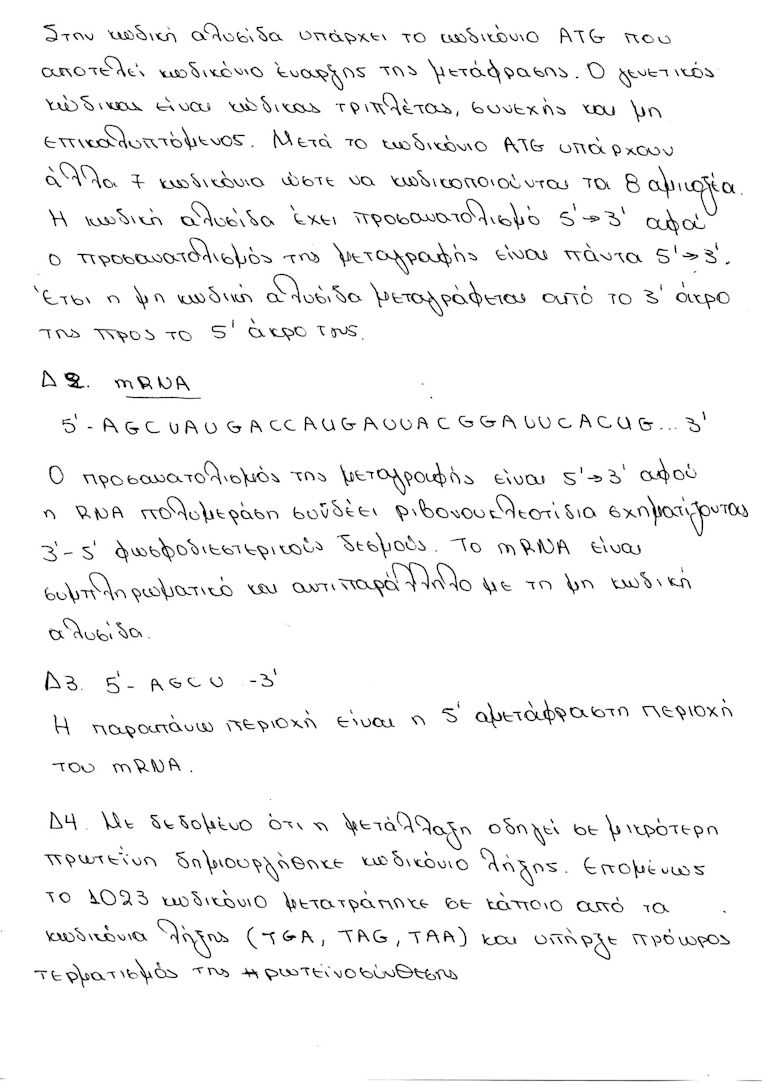 Στην κωδική αλυσίδα υπάρχει το κωδικόνιο ATG που
αποτελεί κωδικόνιο έναρξης της μετάφρασης. Ο γενετικός
κώδικας είναι κώδικας τριπλέτας, συνεχής και μη
επικαλυπτόμενος. Μετά το κωδικόνιο ATG υπάρχουν
άλλα 7 κωδικόνια ώστε να κωδικοποιούνται τα 8 αμινοξέα.
Η κωδική αλυσίδα έχει προσανατολισμό 5'→3' αφού
ο προσανατολισμός της μεταγραφής είναι πάντα 5'→3'.
Έτσι η μη κωδική αλυσίδα μεταγράφεται από το 3' άκρο
της προς το 5' άκρο της.
Δ2. mRNA
5'-AGCUAUGACCAUGAUUACGGAUUCACUG...3'
Ο προσανατολισμός της μεταγραφής είναι 5'→3' αφού
η RNA πολυμεράση συνδέει ριβονουκλεοτίδια σχηματίζοντας
3'-5' φωσφοδιεστερικούς δεσμούς. Το mRNA είναι
συμπληρωματικό και αντιπαράλληλο με τη μη κωδική
αλυσίδα.
Δ3. 5'-AGCU -3'
Η παραπάνω περιοχή είναι η 5' αμετάφραστη περιοχή
του mRNA.
Δ4. Με δεδομένο ότι η μετάλλαξη οδηγεί σε μικρότερη
πρωτεΐνη δημιουργήθηκε κωδικόνιο λήξης. Επομένως
το 1023 κωδικόνιο μετατράπηκε σε κάποιο από τα
κωδικόνια λήξης (TGA, TAG, TAA) και υπήρξε πρόωρος
τερματισμός της πρωτεϊνοσύνθεσης